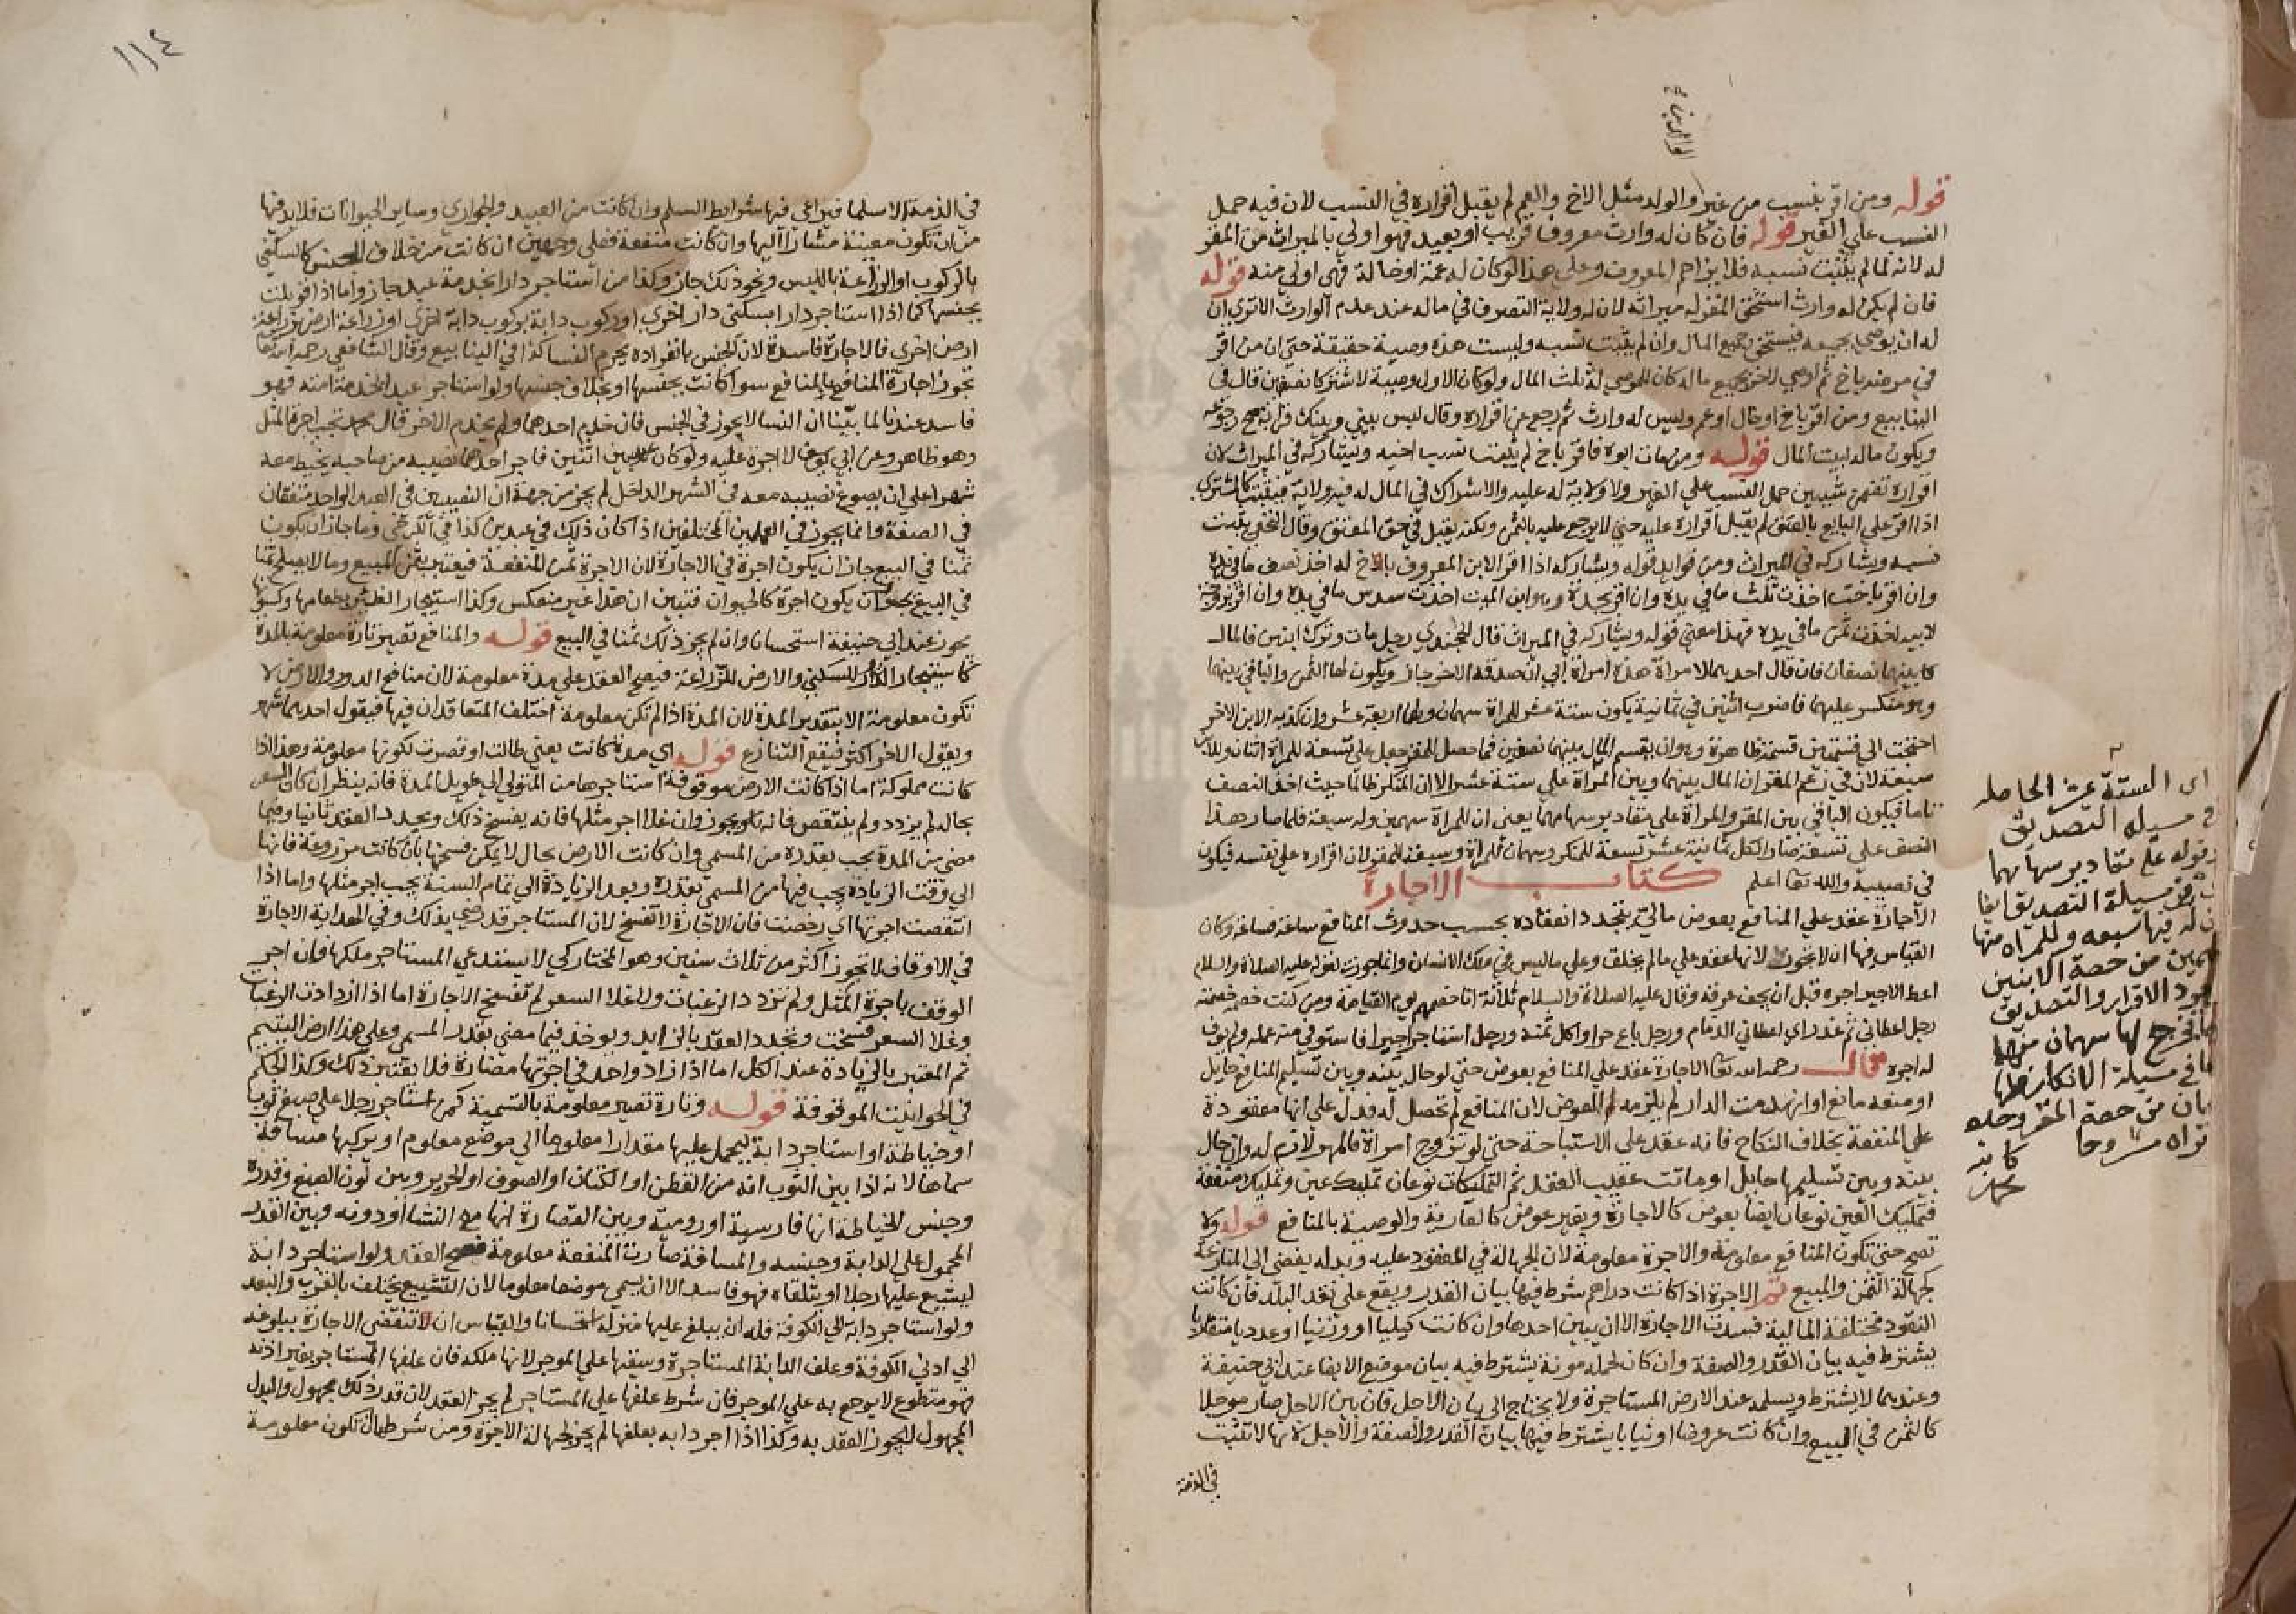 الوالدين صح
قوله ومن اقر بنسب من غير والولد مثل الاخ والعم لم يقبل اقراره في النسب لان فيه حمل
النسب علي الغير قوله فان كان له وارث معروف قريب او بعيد فهو اولي بالميراث من المقر
له لانه لما لم يثبت نسبه فلا يزاحم المعروف وعلي هذا لو كان له عمة او خالة فهي اولي منه قوله
فان لم يكن له وارث استحق المقر له ميراثه لان له ولاية التصرف في ماله عند عدم الوارث الا تري ان
له ان يوصي بجميعه فيستحق جميع المال وان لم يثبت نسبه وليست هذه وصية حقيقة حتي ان من اقر
في مرضه باخ ثم اوصي لاخر بجميع ماله كان للموصي له ثلث المال ولو كان الاول وصية لاشتركا نصفين قال في
الينابيع ومن اقر باخ او خال او عم وليس له وارث ثم رجع عن اقراره وقال ليس بيني وبينك قرابة صح رجوعه
ويكون ماله لبيت المال قوله ومن مات ابوه فاقر باخ لم يثبت نسب اخيه ويشاركه في الميراث لان
اقراره تضمن شيئين حمل النسب علي الغير ولا ولاية له عليه والاشتراك في المال له فيه ولاية فيثبت كالمشتري
اذا اقر علي البايع بالعتق لم يقبل اقراره عليه حتي لا يرجع عليه بالثمن ولكنه يقبل في حق المعتق وقال النخعي يثبت
نسبه ويشاركه في الميراث ومن فوايد قوله ويشاركه اذا اقر الابن المعروف باخ له اخذ نصف ما في يده
وان اقر باخت اخذت ثلث ما في يده وان اقر بجدة وهو ابن الميت اخذت سدس ما في يده وان اقر بزوجة
لابيه اخذت ثمن ما في يده فهذا معني قوله ويشاركه في الميراث قال الخجندي رجل مات وترك ابنين فالمال
كا بينهما نصفان فان قال احدهما لامراة هذه امراة ابي ان صدقه الاخر جاز ويكون لها الثمن والباقي بينهما
وهو منكسر عليهما فاضرب اثنين في ثمانية يكون ستة عشر للمراة سهمان ولهما اربعة عشر وان كذبه الابن الاخر
احتجت الي قسمتين قسمة ظاهرة وهو ان يقسم المال بينهما نصفين فما حصل للمقر جعل علي تسعة للمراة اثنان وللابن
سبعة لان في زعم المقر ان المال بينهما وبين المراة علي ستة عشر الا ان المنكر ظالما حيث اخذ النصف
تاما فيكون الباقي بين المقر والمراة علي مقادير سهامهما يعني ان للمراة سهمين وله سبعة فلما صار هذا
النصف علي تسعة صار الكل ثمانية عشر تسعة للمنكر وسهمان للمراة وسبعة للمقر لان اقراره علي نفسه فيكون
في نصيبه والله تعا اعلم كتاب الاجارة
الاجارة عقد علي المنافع بعوض مالي يتجدد انعقاده بحسب حدوث المنافع ساعة فساعة وكان
القياس فيها ان لا تجوز لانها عقد علي ما لم يخلق وعلي ما ليس في ملك الانسان وانما جوزت لقوله عليه الصلاة والسلام
اعط الاجير اجره قبل ان يجف عرقه وقال عليه الصلاة والسلام ثلاثة انا خصمهم يوم القيامة ومن كنت خصمه خصمته
رجل اعطاني ثم غدر اي اعطاني الذمام ورجل باع حرا واكل ثمنه ورجل استاجر اجيرا فاستوفي منه عمله ولم يوف
له اجره قال رحمه الله تعا الاجارة عقد علي المنافع بعوض حتي لو حال بينه وبين تسليم المنافع حايل
او منعه مانع او انهدمت الدار لم يلزمه العوض لان المنافع لم تحصل له فدل علي انها معقودة
علي المنفعة بخلاف النكاح فانه عقد علي الاستباحة حتي لو تزوج امراة فالمهر لازم له وان حال
بينه وبين تسليمها حايل او ماتت عقيب العقد ثم التمليكات نوعان تمليك عين وتمليك منفعة
فتمليك العين نوعان ايضا بعوض كالاجارة وبغير عوض كالعارية والوصية بالمنافع قوله ولا
تصح حتي تكون المنافع معلومة والاجرة معلومة لان الجهالة في المعقود عليه وبدله يفضي الي المنازعة
كجهالة الثمن والمبيع ثم الاجرة اذا كانت دراهم شرط فيها بيان القدر ويقع علي نقد البلد فان كانت
النقود مختلفة المالية فسدت الاجارة الا ان يبين احدها وان كانت كيليا او وزنيا او عدديا متقاربا
يشترط فيه بيان القدر والصفة وان كان لحمله مونة يشترط فيه بيان موضع الايفا عند ابي حنيفة
وعندهما لا يشترط ويسلمه عند الارض المستاجرة ولا يحتاج الي بيان الاجل فان بين الاجل صار موجلا
كالثمن في البيع وان كانت عروضا او ثيابا يشترط فيها بيان القدر والصفة والاجل لانها لا تثبت
في الذمة
اي الستة عشر الحاصله
في مسيلة التصديق
قوله علي مقادير سهامهما
في مسيلة التصديق ايضا
له فيها سبعه وللمراه منها
سهمين من حصة الابنين
الاقرار والتصديق
لها سهمان منها
في مسيلة الانكار
من حصة المقر وحده
تراه مشروحا
كاتبه
محمد
١١٤
في الذمة الا سلما فيراعي فيها شرايط السلم وان كانت من العبيد والجواري وساير الحيوانات فلا بد فيها
من ان تكون معينة مشارا اليها وان كانت منفعة فعلي وجهين ان كانت من خلاف الجنس كالسكني
بالركوب او الزراعة باللبس ونحو ذلك جاز وكذا من استاجر دارا بخدمة عبد جاز واما اذا قوبلت
بجنسها كما اذا استاجر دارا بسكني دار اخري او ركوب دابة بركوب دابة اخري او زراعة ارض بزراعة
ارض اخري فالاجارة فاسدة لان الجنس بانفراده يحرم النسا كذا في الينابيع وقال الشافعي رحمه الله تعا
تجوز اجارة المنافع بالمنافع سوا كانت بجنسها او بخلاف جنسها ولو استاجر عبدا لخدمة امته فهو
فاسد عندنا لما بينا ان النسا لا يجوز في الجنس فان خدم احدهما ولم يخدم الاخر قال محمد تجب اجرة المثل
وهو ظاهر وعن ابي يوسف لا اجرة عليه ولو كان عبد بين اثنين فاجر احدهما نصيبه من صاحبه يخيط معه
شهرا علي ان يصوغ نصيبه معه في الشهر الداخل لم يجز من جهة ان النصيبين في العبد الواحد متفقان
في الصفة وانما يجوز في العملين المختلفين اذا كان ذلك في عبدين كذا في الكرخي وما جاز ان يكون
ثمنا في البيع جاز ان يكون اجرة في الاجارة لان الاجرة ثمن المنفعة فيعتبر بثمن المبيع وما لا يصلح ثمنا
في البيع يجوز ان يكون اجرة كالحيوان فتبين ان هذا غير منعكس وكذا استيجار الظير بطعامها وكسوتها
يجوز عند ابي حنيفة استحسانا وان لم يجز ذلك ثمنا في البيع قوله والمنافع تصير تارة معلومة بالمدة
كاستيجار الدار للسكني والارض للزراعة فيصح العقد علي مدة معلومة لان منافع الدور والارض لا
تكون معلومة الا بتقدير المدة لان المدة اذا لم تكن معلومة اختلف المتعاقدان فيها فيقول احدهما شهر
ويقول الاخر اكثر فيقع التنازع قوله اي مدة كانت يعني طالت او قصرت لكونها معلومة وهذا اذا
كانت مملوكة اما اذا كانت الارض موقوفة استاجرها من المتولي الي طويل المدة فانه ينظر ان كان السعر
بحاله لم يزدد ولم ينتقص فانه يجوز وان غلا اجر مثلها فانه يفسخ ذلك ويجدد العقد ثانيا وفيما
مضي من المدة يجب بقدره من المسمي وان كانت الارض بحال لا يمكن فسخها بان كانت مزروعة فانها
الي وقت الزيادة يجب فيها من المسمي بقدره وبعد الزيادة الي تمام السنة يجب اجر مثلها واما اذا
انتقصت اجرتها اي رخصت فان الاجارة لا تفسخ لان المستاجر قد رضي بذلك وفي الهداية الاجارة
في الاوقاف لا تجوز اكثر من ثلاث سنين وهو المختار كي لا يستدعي المستاجر ملكها فان اجر
الوقف باجرة المثل ولم تزدد الرغبات ولا غلا السعر لم تفسخ الاجارة اما اذا ازدادت الرغبات
وغلا السعر فسخت وتجدد العقد بالزايد ويوخذ فيما مضي بقدر المسمي وعلي هذا ارض اليتيم
ثم المعتبر بالزيادة عند الكل اما اذا زاد واحد في اجرتها مضارة فلا يعتبر ذلك وكذا الحكم
في الحوانيت الموقوفة قوله وتارة تصير معلومة بالتسمية كمن استاجر رجلا علي صبغ ثوب
او خياطة او استاجر دابة ليحمل عليها مقدارا معلوما الي موضع معلوم او يركبها مسافة
سماها لانه اذا بين الثوب انه من القطن او الكتان او الصوف او الحرير وبين لون الصبغ وقدره
وجنس الخياطة انها فارسية او رومية وبين القصارة انها مع النشا او دونه وبين القدر
المحمول علي الدابة وجنسه والمسافة صارت المنفعة معلومة فصح العقد ولو استاجر دابة
ليشيع عليها رجلا او يتلقاه فهو فاسد الا ان يسمي موضعا معلوما لان التشييع يختلف بالقرب والبعد
ولو استاجر دابة الي الكوفة فله ان يبلغ عليها منزله استحسانا والقياس ان تنقضي الاجارة ببلوغه
الي ادني الكوفة وعلف الدابة المستاجرة وسقيها علي الموجر لانها ملكه فان علفها المستاجر بغير اذنه
فهو متطوع لا يرجع به علي الموجر فان شرط علفها علي المستاجر لم يجز العقد لان قدر ذلك مجهول والبدل
المجهول لا يجوز العقد به وكذا اذا اجر دابة بعلفها لم يجز لجهالة الاجرة ومن شرطها ان تكون معلومة